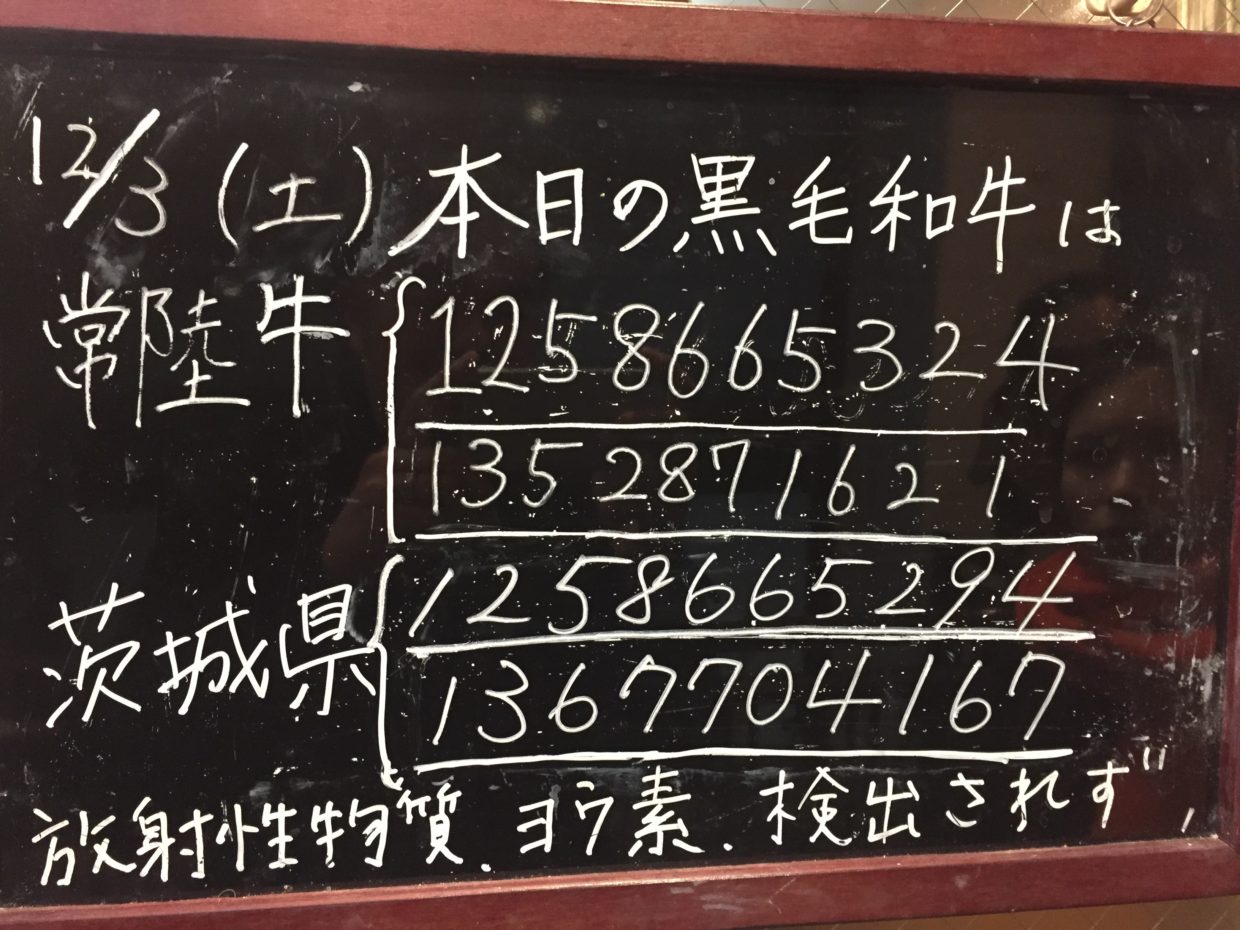 12/3 (土) 本日の黒毛和牛は
常陸牛 { 1258665324
1352871621
茨城県 { 1258665294
1367704167
放射性物質.ヨウ素.検出されず,